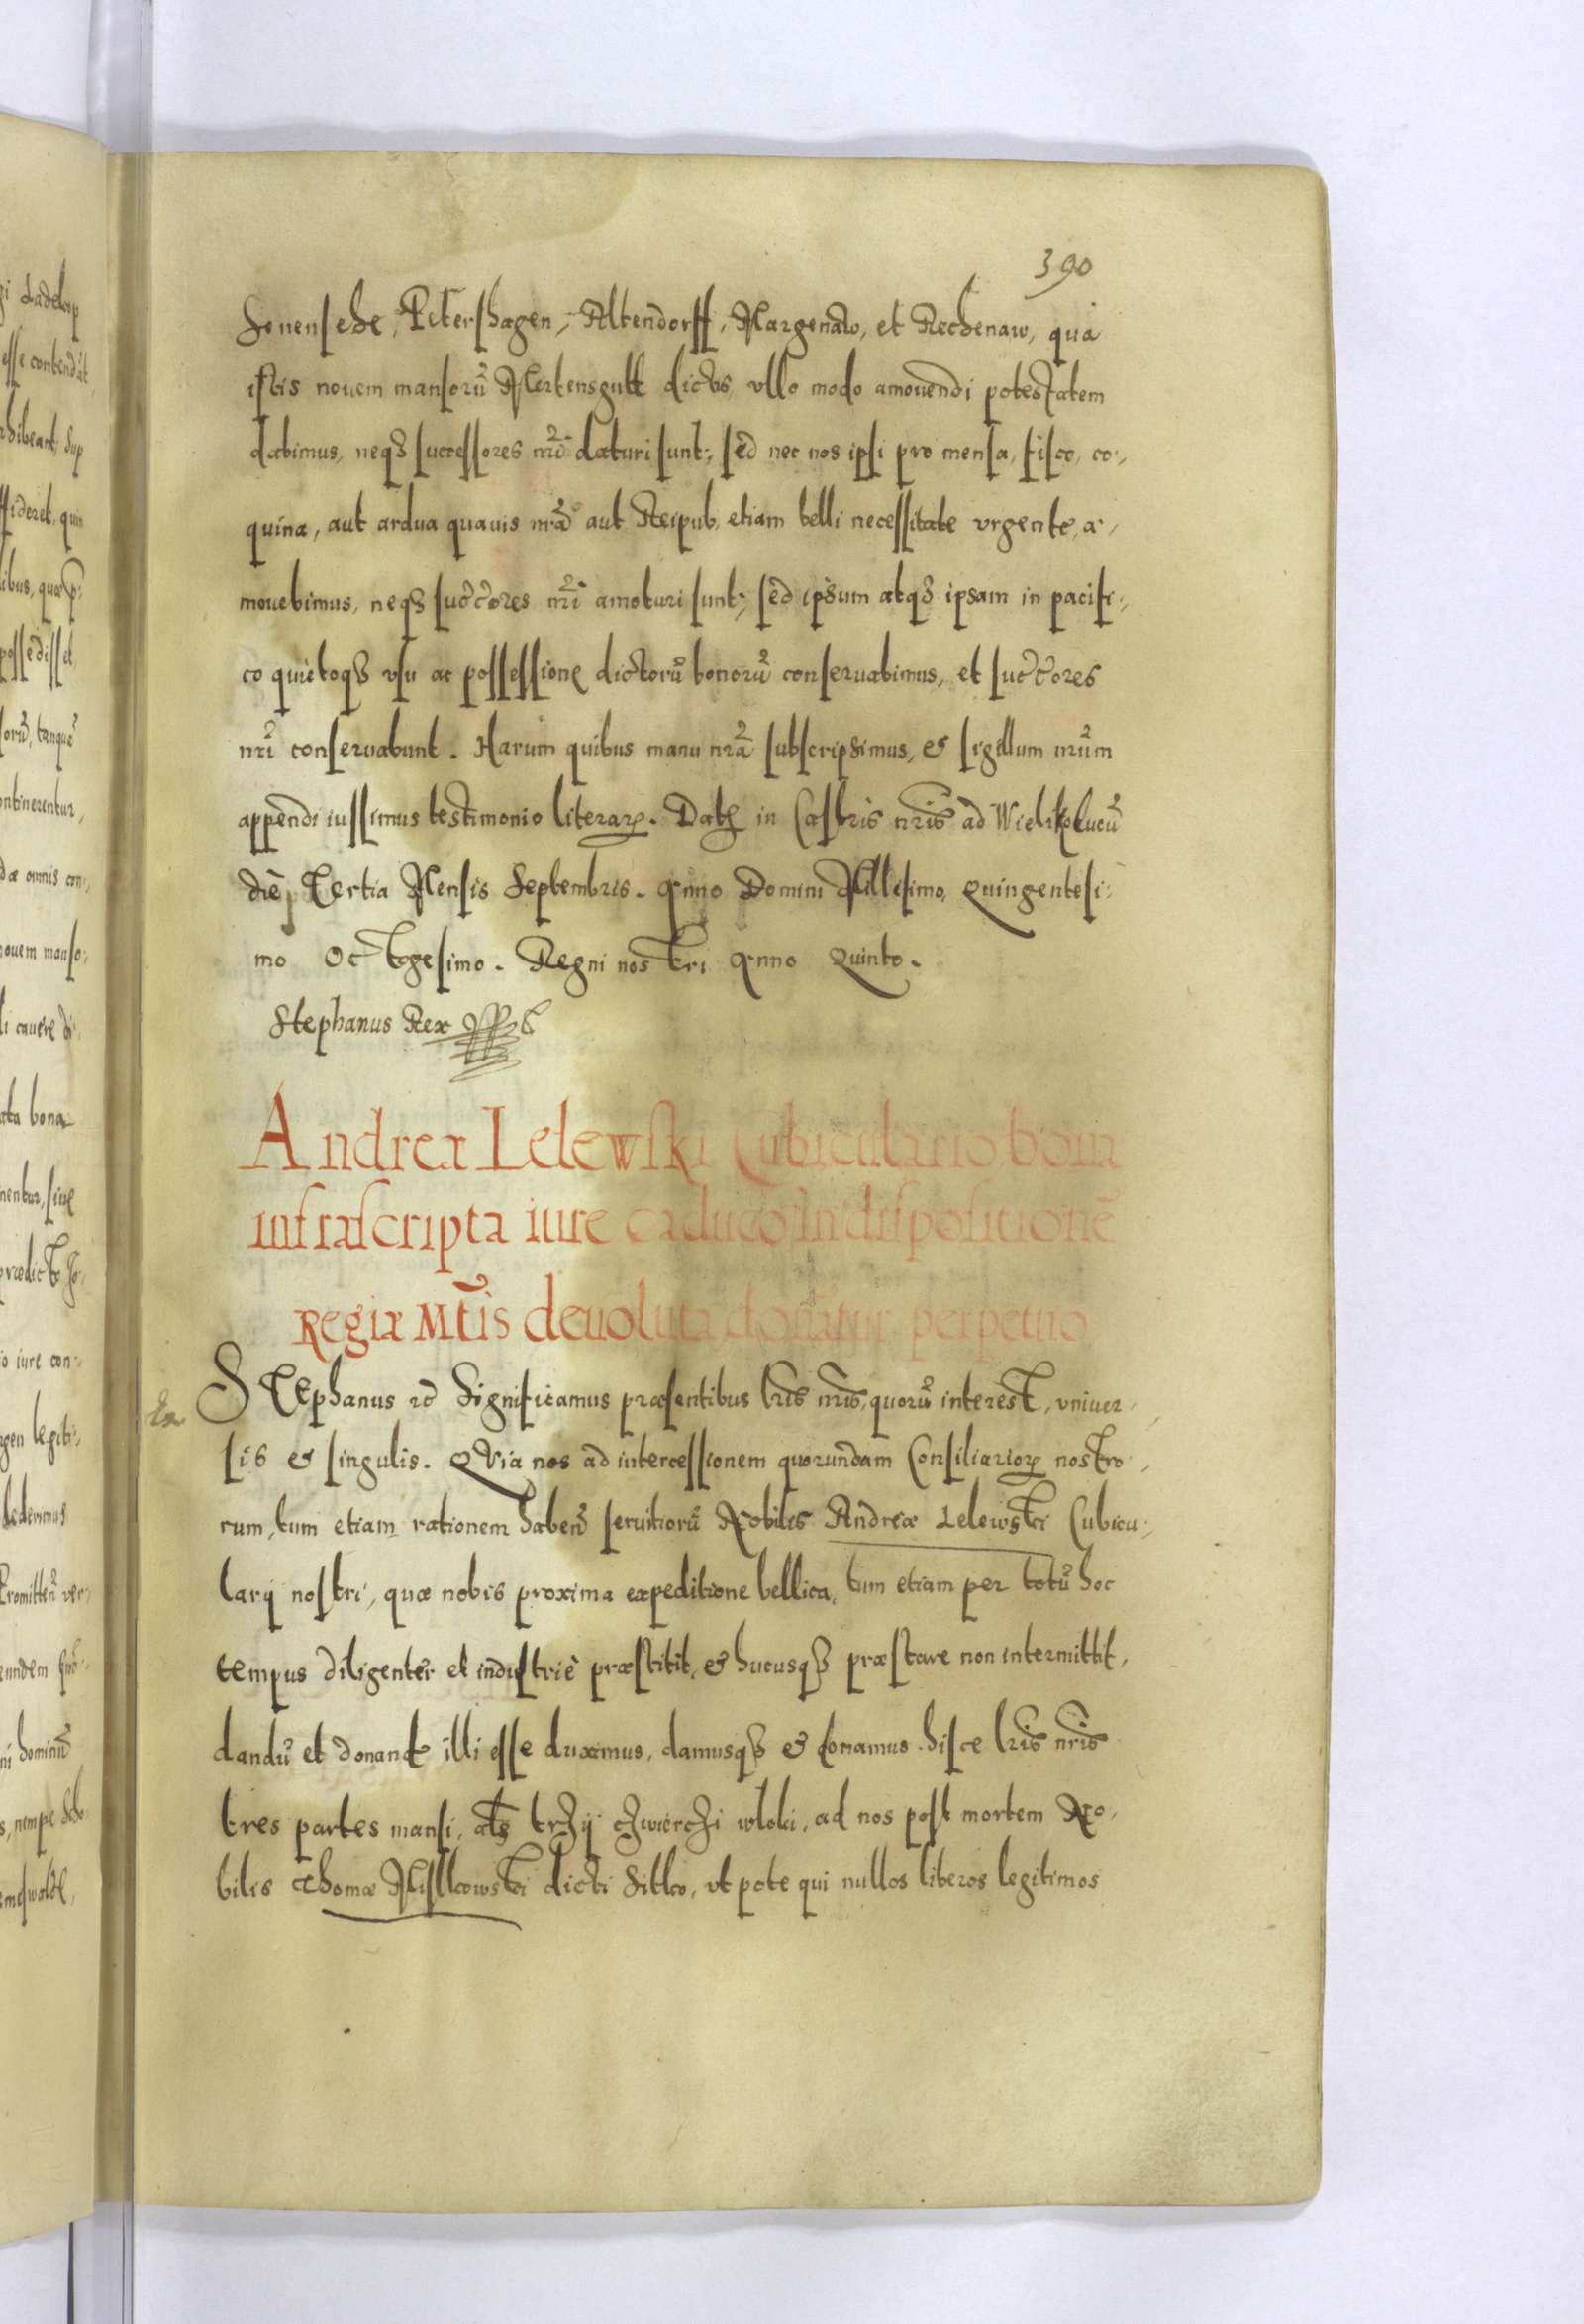 390
Sonensehe, Pitershagen, Altendorff, Margenaw, et Rechenaw, qua
istis nouem mansorũ Mertensgutt dictis, vllo modo amouendi potestatem
dabimus, neqȝ successores nr̃i daturi sunt, sed nec nos ipsi pro mensa, fisco, co-
quina, aut ardua quauis nr̃a aut Reipub, etiam belli necessitate vrgente, a-
mouebimus, neqȝ succ̃ores nr̃i amoturi sunt, sed ipsum atqȝ ipsam in pacifi-
co quietoqȝ vsu ac possessione dictorũ bonorũ conseruabimus, et succ̃ores
nr̃i conseruabunt. Harum quibus manu nr̃a subscripsimus, et sigillum nr̃um
appendi iussimus testimonio literarꝝ. Datꝭ in Castris nr̃is ad Wielikolucũ
die Tertia Mensis Septembris. Anno Domini Millesimo, Quingentesi-
mo Octogesimo. Regni nostri Anno Quinto.
Stephanus Rex
Andreæ Lelewski Cubiculario bona
infrascripta iure caduco in dispositionẽ
Regiæ Mt̃is deuoluta donatur perpetuo
STephanus etc̃ Significamus præsentibus lr̃is nr̃is, quorũ interest, vniuer-
sis et singulis. QVia nos ad intercessionem quorundam Consiliariorꝝ nostro-
rum, tum etiam rationem haben̄ seruitiorũ Nobilis Andreæ Lelewski Cubicu-
larij nostri, quæ nobis proxima expeditione bellica, tum etiam per totũ hoc
tempus diligenter et industriè præstitit, et hucusqȝ præstare non intermittit,
dandũ et donand illi esse duximus, damusqȝ et donamus hisce lr̃is nr̃is
tres partes mansi, al̃s trzÿ czwierczi wloki, ad nos post mortem No-
bilis Thomæ dicti Sitko, vt pote qui nullos liberos legitimos